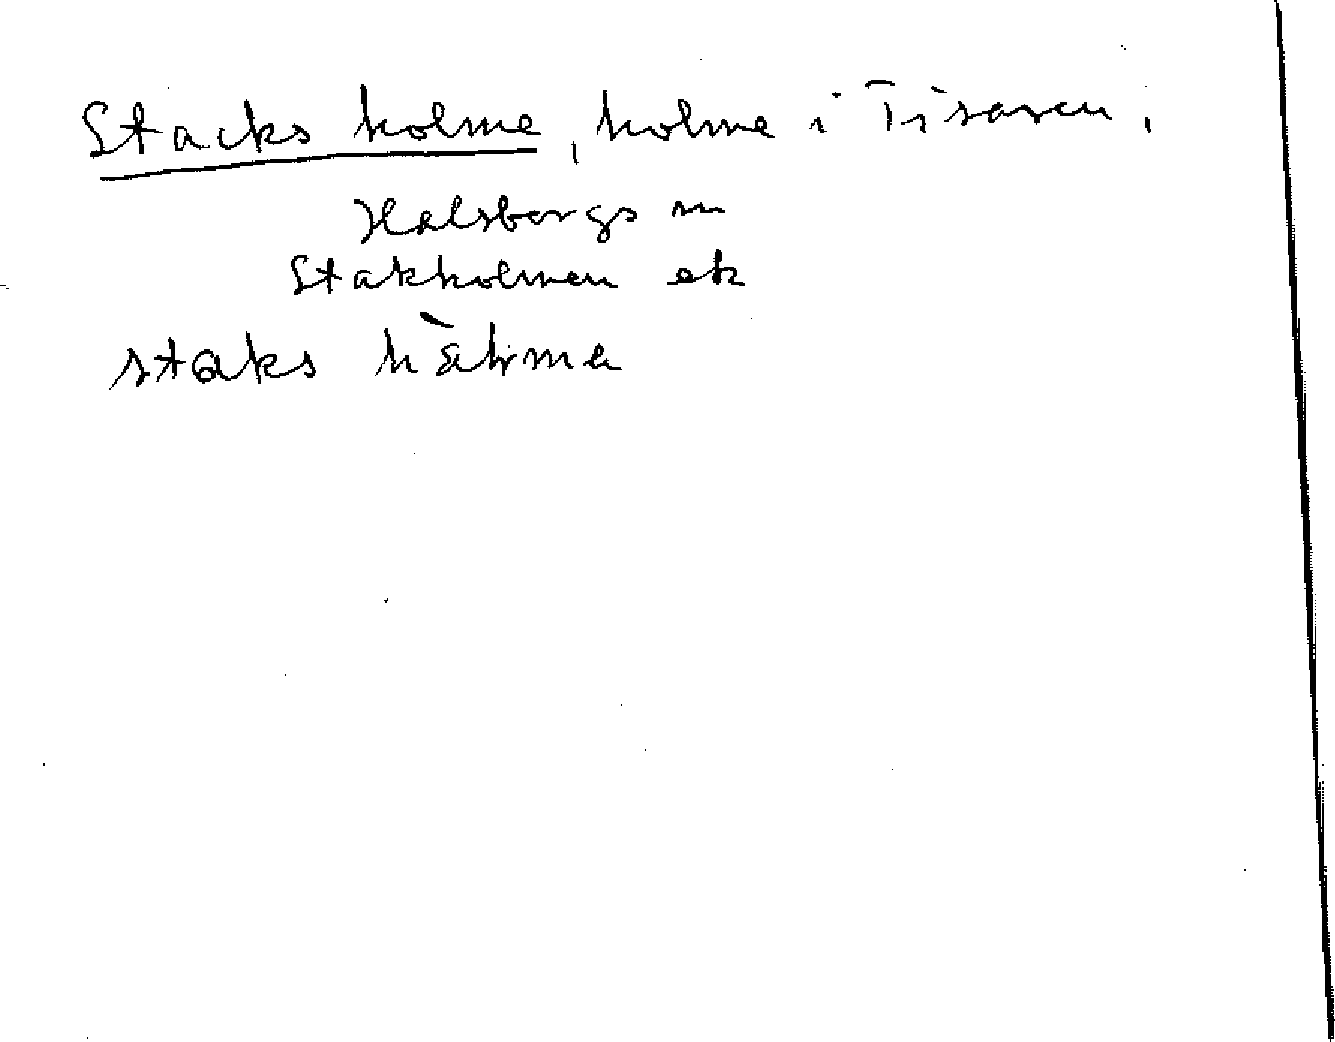 Stacks holme, holme i Tisaren,
Halsbergs sn
Stakholmen ek
staks hàlmen